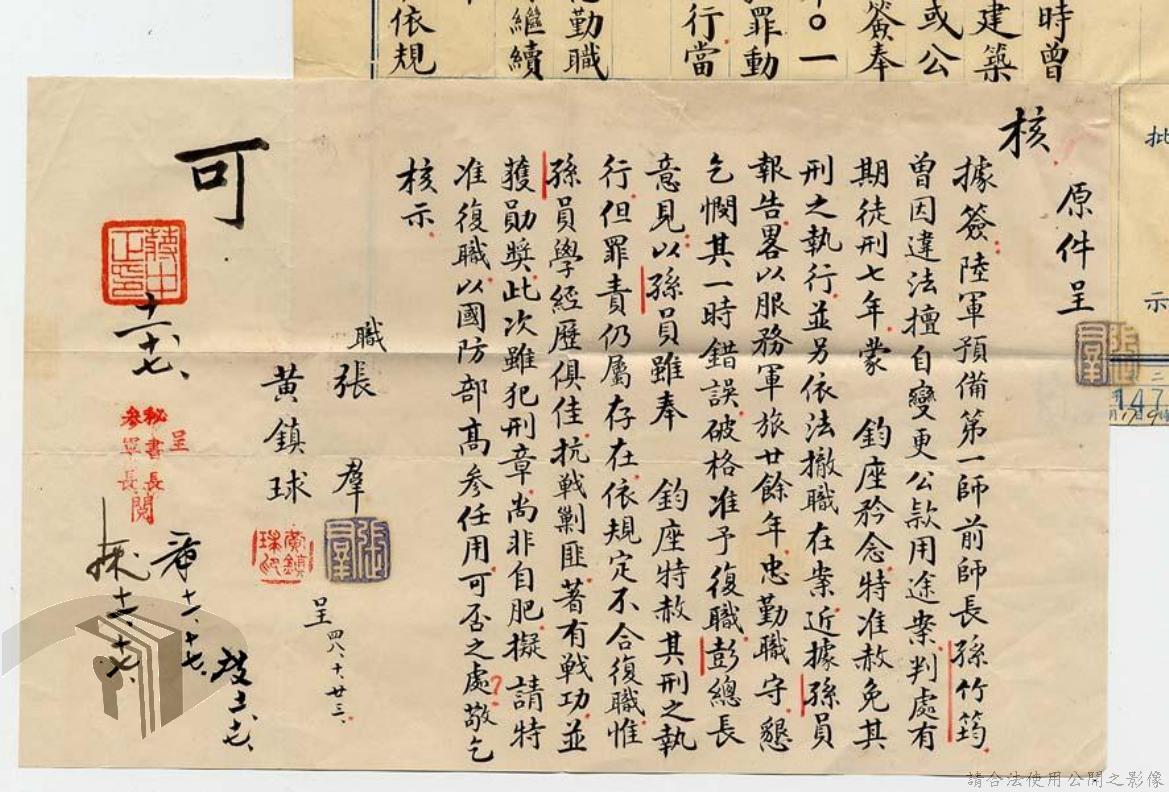 時曾
建築
或公
簽奉
年〇一
罪動
行當
勤職
繼續
依規
批
示
147
原件呈
核
據簽陸軍預備第一師前師長孫竹筠
曾因違法擅自變更公款用途案判處有
期徒刑七年蒙　鈞座矜念特准赦免其
刑之執行並另依法撤職在案近據孫員
報告畧以服務軍旅廿餘年忠勤職守懇
乞憫其一時錯誤破格准予復職彭總長
意見以孫員雖奉　鈞座特赦其刑之執
行但罪責仍屬存在依規定不合復職惟
孫員學經歷俱佳抗戰剿匪著有戰功並
獲勛獎此次雖犯刑章尚非自肥擬請特
准復職以國防部高參任用可否之處敬乞
核示
職張　羣
張羣
黃鎮球
黃鎮球印
呈四八、十、廿三、
可
蔣中正印
十一、十七、
呈
秘書長
參軍長
閱
十一、十七、
十一、十七、
請合法使用公開之影像